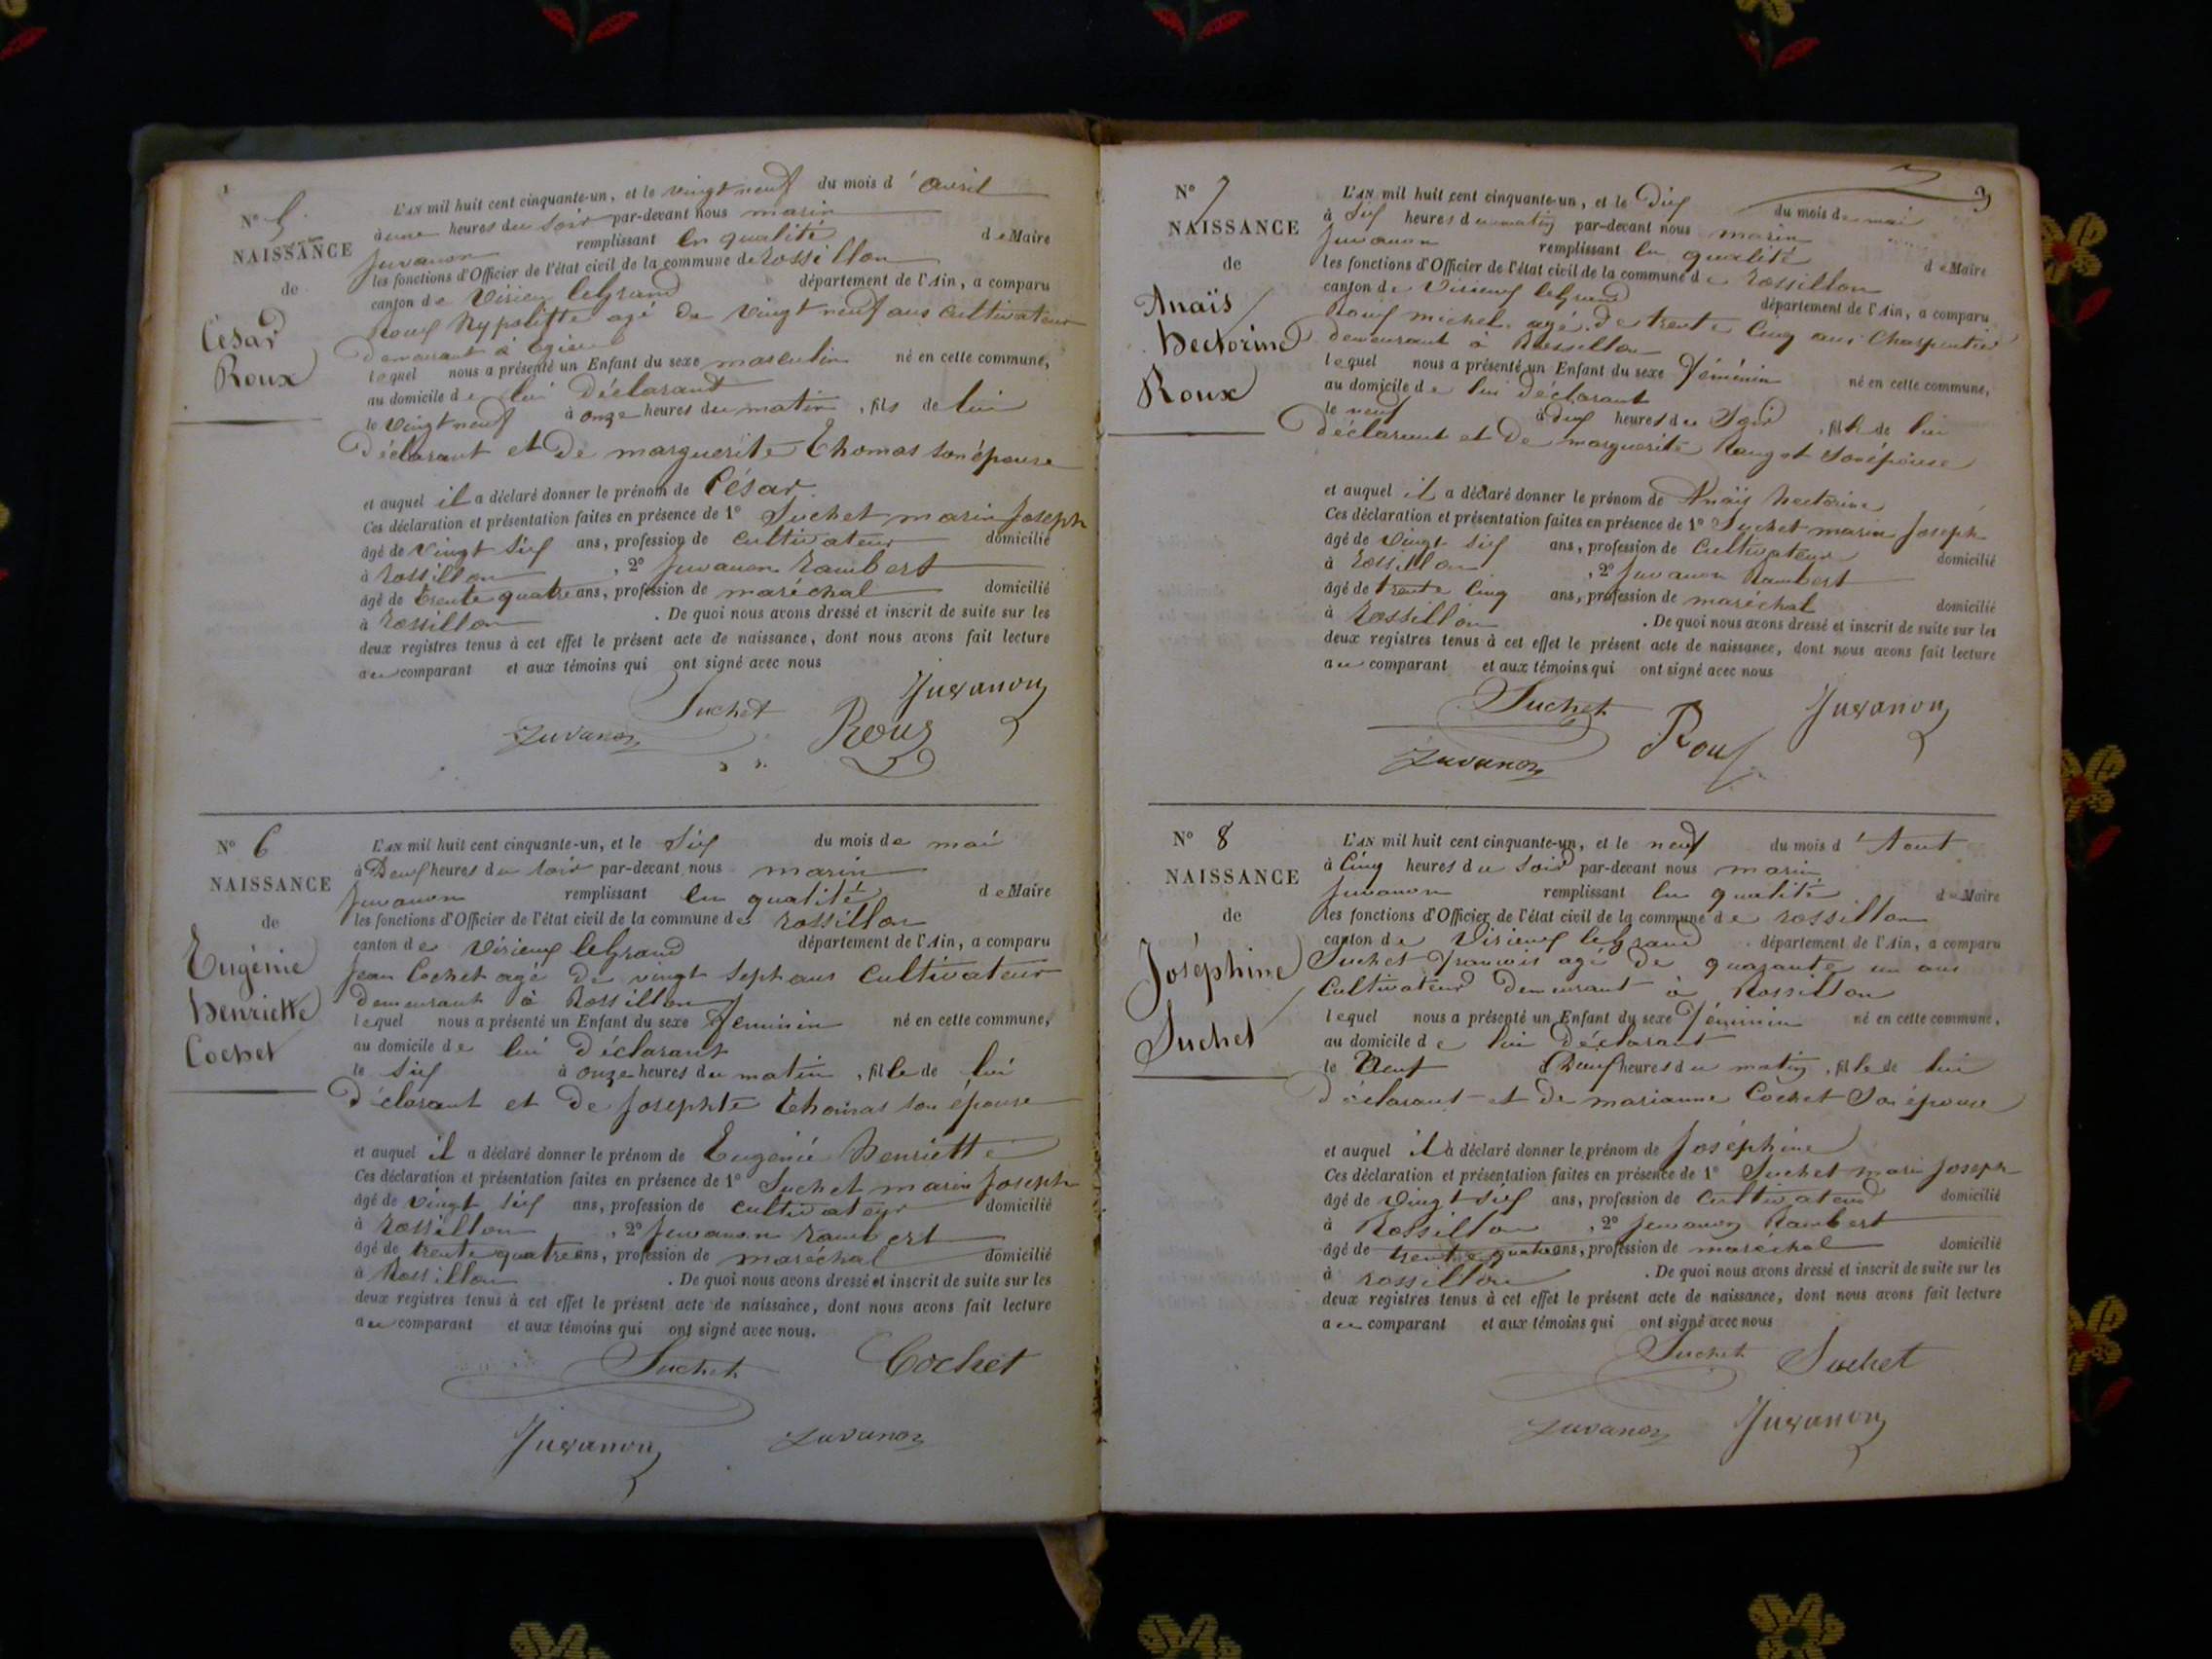 N° 5
NAISSANCE
de
César
Roux
L'AN mil huit cent cinquante-un, et le vingt neuf du mois d'avril
à une heures du soir par-devant nous marin
Juvanon remplissant en qualité de Maire
les fonctions d'Officier de l'état civil de la commune de Rossillon
canton de Virieux leGrand département de l'Ain, a comparu
Roux hypolitte agé de vingt neuf ans cultivateur
demeurant à
lequel nous a présenté un Enfant du sexe masculin né en cette commune,
au domicile de lui Déclarant
le vingt neuf à onze heures du matin, fils de lui
Déclarant et De marguerite Thomas son épouse
et auquel il a déclaré donner le prénom de César
Ces déclaration et présentation faites en présence de 1° Suchet marin Joseph
âgé de vingt six ans, profession de cultivateur domicilié
à Rossillon, 2° Juvanon Rambert
âgé de trente quatre ans, profession de maréchal domicilié
à Rossillon. De quoi nous avons dressé et inscrit de suite sur les
deux registres tenus à cet effet le présent acte de naissance, dont nous avons fait lecture
au comparant et aux témoins qui ont signé avec nous
Suchet Juvanon
Juvanon Roux
N° 6
NAISSANCE
de
Eugénie
henriette
Cochet
L'AN mil huit cent cinquante-un, et le six du mois de mai
à Deux heures du soir par-devant nous marin
Juvanon remplissant en qualité de Maire
les fonctions d'Officier de l'état civil de la commune de Rossillon
canton de Virieux leGrand département de l'Ain, a comparu
Jean Cochet agé de vingt sept ans cultivateur
demeurant à Rossillon
lequel nous a présenté un Enfant du sexe feminin né en cette commune,
au domicile de lui Déclarant
le six à onze heures du matin, fille de lui
Déclarant et De Josephte Thomas son épouse
et auquel il a déclaré donner le prénom de Eugénie henriette
Ces déclaration et présentation faites en présence de 1° Suchet marin Joseph
âgé de vingt six ans, profession de cultivateur domicilié
à Rossillon, 2° Juvanon Rambert
âgé de trente quatre ans, profession de maréchal domicilié
à Rossillon. De quoi nous avons dressé et inscrit de suite sur les
deux registres tenus à cet effet le présent acte de naissance, dont nous avons fait lecture
au comparant et aux témoins qui ont signé avec nous.
Suchet Cochet
Juvanon Juvanon
3
N° 7
NAISSANCE
de
Anaïs
hectorine
Roux
L'AN mil huit cent cinquante-un, et le Dix du mois de mai
à six heures du matin par-devant nous marin
Juvanon remplissant en qualité de Maire
les fonctions d'Officier de l'état civil de la commune de Rossillon
canton de Virieux leGrand département de l'Ain, a comparu
Roux michel agé de trente cinq ans Charpentier
demeurant à Rossillon
lequel nous a présenté un Enfant du sexe féminin né en cette commune,
au domicile de lui déclarant
le neuf à dix heures du Soir, fille de lui
déclarant et De marguerite Son épouse
et auquel il a déclaré donner le prénom de Anaïs hectorine
Ces déclaration et présentation faites en présence de 1° Suchet marin Joseph
âgé de vingt six ans, profession de cultivateur domicilié
à Rossillon, 2° Juvanon Rambert
âgé de trente cinq ans, profession de maréchal domicilié
à Rossillon. De quoi nous avons dressé et inscrit de suite sur les
deux registres tenus à cet effet le présent acte de naissance, dont nous avons fait lecture
au comparant et aux témoins qui ont signé avec nous
Suchet Juvanon
Juvanon Roux
N° 8
NAISSANCE
de
Joséphine
Suchet
L'AN mil huit cent cinquante-un, et le neuf du mois d'Aout
à cinq heures du Soir par-devant nous marin
Juvanon remplissant en qualité de Maire
les fonctions d'Officier de l'état civil de la commune de Rossillon
canton de Virieux legrand département de l'Ain, a comparu
Suchet françois agé de quarante un ans
Cultivateur Demeurant à Rossillon
lequel nous a présenté un Enfant du sexe féminin né en cette commune,
au domicile de lui Déclarant
le Neuf à heures du matin, fille de lui
déclarant et de marianne Cochet Son épouse
et auquel il a déclaré donner le prénom de Joséphine
Ces déclaration et présentation faites en présence de 1° Suchet marin Joseph
âgé de vingt six ans, profession de Cultivateur domicilié
à Rossillon, 2° Juvanon Rambert
âgé de trente quatre ans, profession de maréchal domicilié
à Rossillon. De quoi nous avons dressé et inscrit de suite sur les
deux registres tenus à cet effet le présent acte de naissance, dont nous avons fait lecture
au comparant et aux témoins qui ont signé avec nous
Suchet Suchet
Juvanon Juvanon